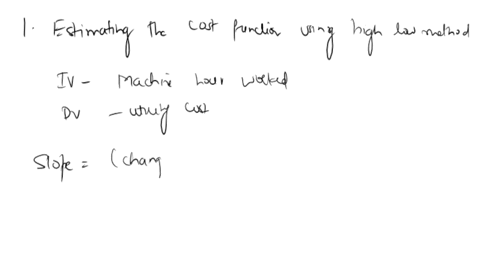 1. Estimating the cost function using high low method
IV - Machine hour worked
DV - utility cost
Slope = (chang